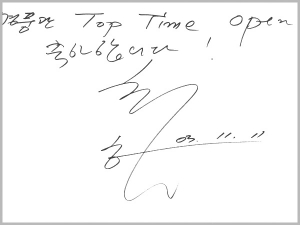 Top Time Open
축하합니다!
03. 11. 11